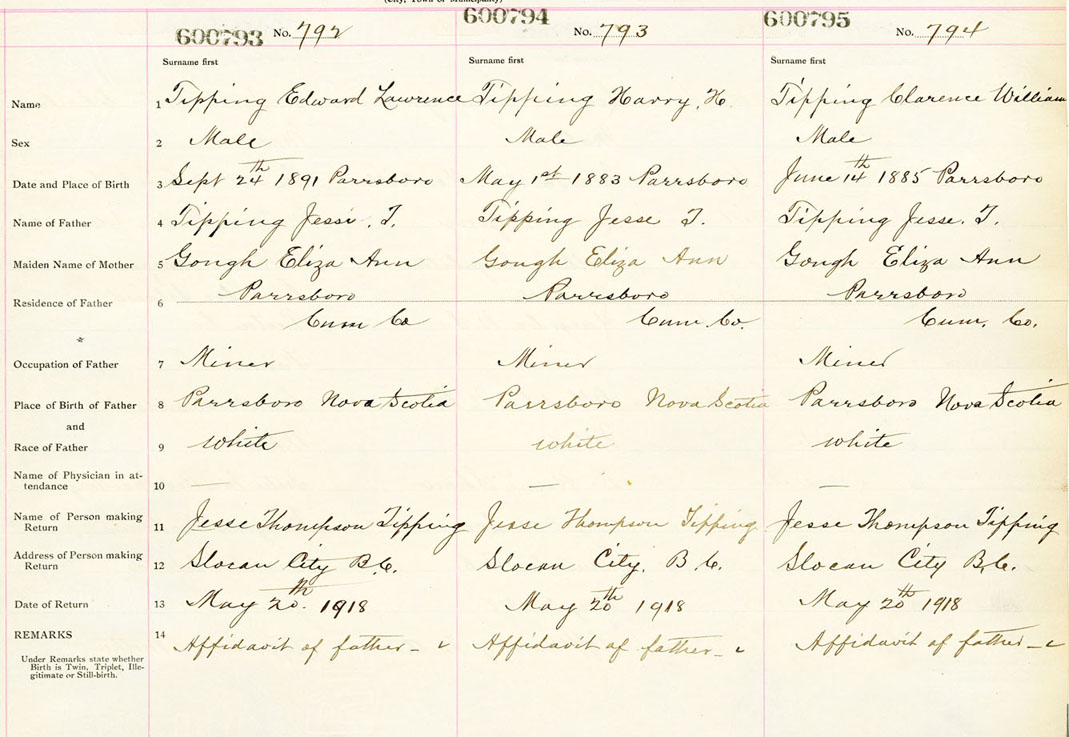 (City, Town or Municipality)
600793 No. 792
600794 No. 793
600795 No. 794
Surname first Surname first Surname first
Name 1 Tipping Edward Lawrence Tipping Harry. H. Tipping Clarence William
Sex 2 Male Male Male
Date and Place of Birth 3 Sept 24th 1891 Parrsboro May 1st 1883 Parrsboro June 14th 1885 Parrsboro
Name of Father 4 Tipping Jesse. T. Tipping Jesse T. Tipping Jesse. T.
Maiden Name of Mother 5 Gough Eliza Ann Gough Eliza Ann Gough Eliza Ann
Residence of Father 6 Parrsboro Parrsboro Parrsboro
Cum Co Cum. Co. Cum. Co.
*
Occupation of Father 7 Miner Miner Miner
Place of Birth of Father 8 Parrsboro Nova Scotia Parrsboro Nova Scotia Parrsboro Nova Scotia
and
Race of Father 9 White White White
Name of Physician in at-
tendance 10 — — —
Name of Person making
Return 11 Jesse Thompson Tipping Jesse Thompson Tipping Jesse Thompson Tipping
Address of Person making
Return 12 Slocan City B.C. Slocan City. B.C. Slocan City B.C.
Date of Return 13 May 20th. 1918 May 20th 1918 May 20th 1918
REMARKS 14 Affidavit of father – Affidavit of father – Affidavit of father –
Under Remarks state whether
Birth is Twin, Triplet, Ille-
gitimate or Still-birth.